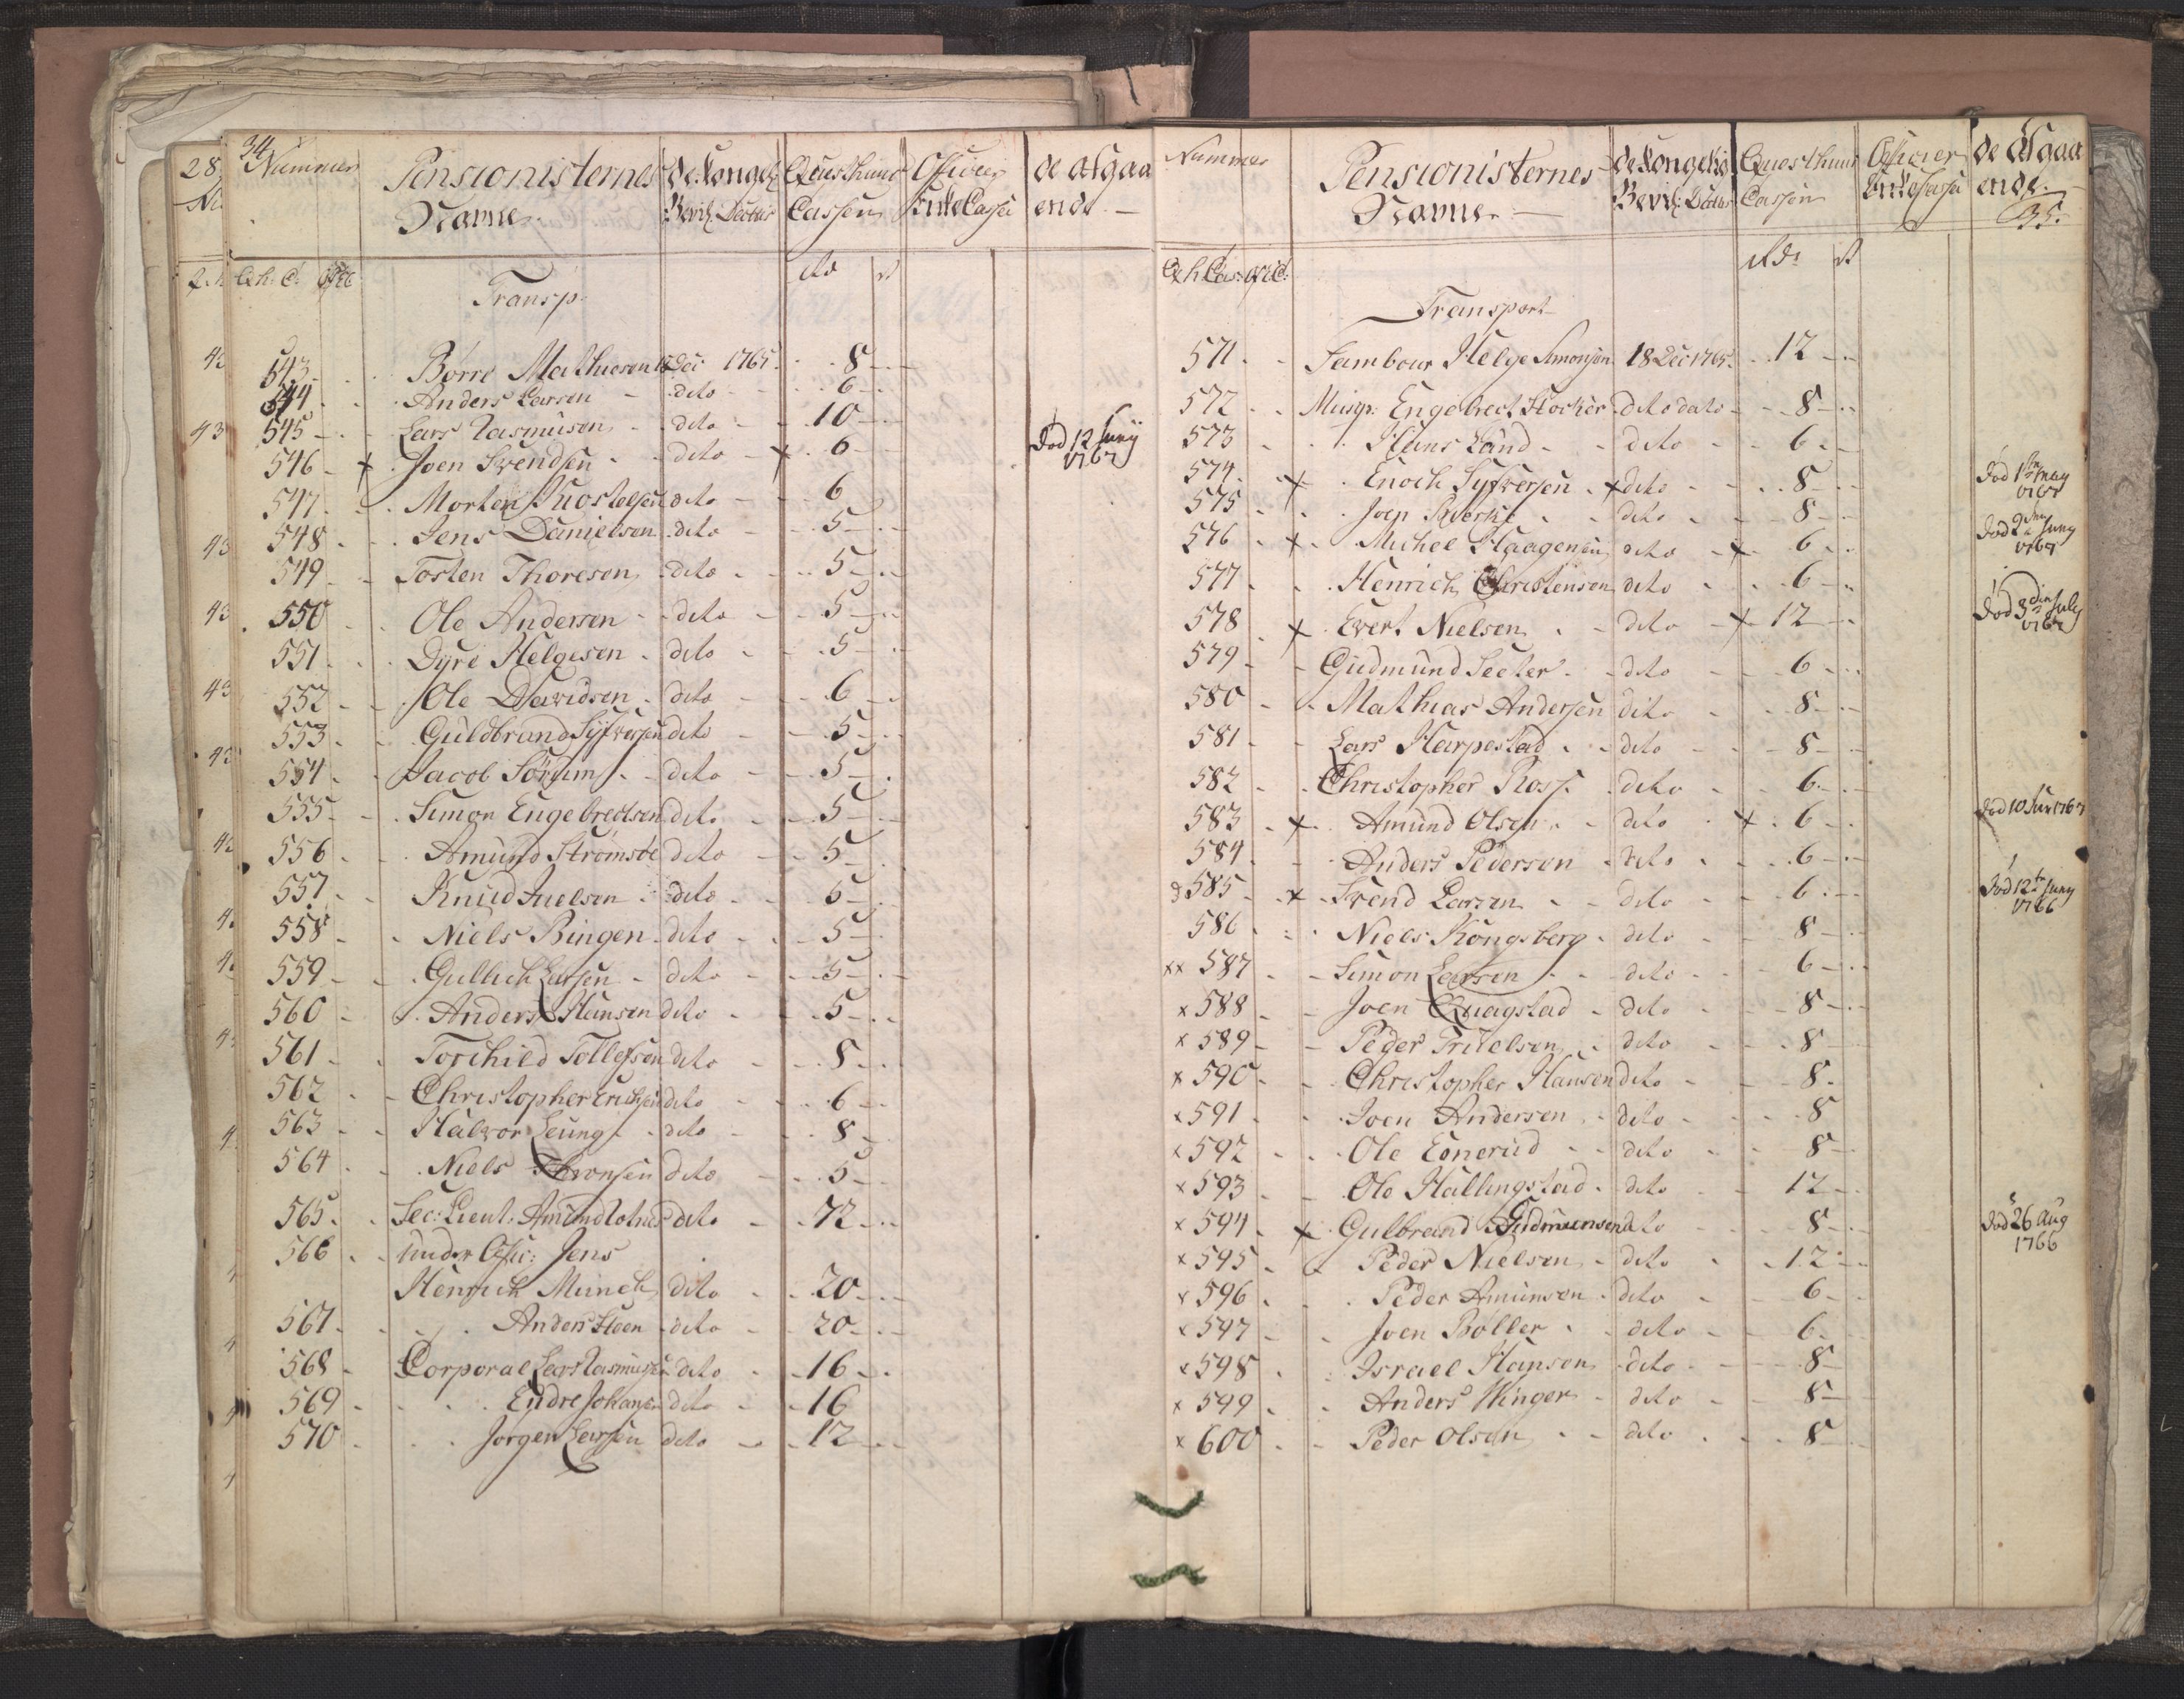 34
Nummer Pensionisternes Navne de Kongel: Bevil: Datter Quæsthuus Cassen Officier Enke Cassa de afgaaende
Q.h.C. Rd
Transp:
543 Børre Mathiesen 18 Dec 1765 8
544 Anders Larsen dito 6
545 Lars Rasmusen dito 10
546 x Joen Svendsen dito x 6 død 12 Junij 1767
547 Morten dito 6
548 Jens Danielsen dito 5
549 Torsten Thoresen dito 5
550 Ole Andersen dito 5
551 Gyre Helgesen dito 5
552 Ole Davidsen dito 6
553 Guldbrand Syfversen dito 5
554 Jacob Sørum dito 5
555 Simon Engebrectsen dito 5
556 Amund Strømsøe dito 5
557 Knud Juelsen dito 5
558 Niels Bingen dito 5
559 Gullich Larsen dito 5
560 Anders Hansen dito 5
561 Torchild Tollefsen dito 8
562 Christopher Erichsen dito 6
563 Halvor Leung dito 8
564 Niels dito 5
565 Sec: Lieut: Amund dito 72
566 Under Offic: Jens
Henrich Munch dito 20
567 Anders Steen dito 20
568 Corporal Lars Rasmusen dito 16
569 Endre Johansen dito 16
570 Jørgen Larsen dito 12
Nummer Pensionisternes Navne de Kongelige Bevil: Datter Quæsthuus Cassen Officier Enke Cassa de afgaaende
35.
Q h Cas: Rdr
Transport
571 Tambour Helge Simonsen 18 Dec 1765 12
572 Musqr: Engebrect Stocker dito dato 8
573 Hans Land dito 6
574 x Enoch Syfversen x dito 8 død 1ste May 1767
575 Joen dito 8
576 x Michel Haagensen dito x 6 død 2den Juny 1767
577 Henrich Christensen dito 6
578 x Evert Nielsen dito x 12 død 3die July 1767
579 Gudmund Seeter dito 6
580 Mathias Andersen dito 8
581 Lars Harpestad dito 8
582 Christopher Ross dito 6
583 x Amund Olsen dito x 6 død 10 Jun 1767
584 Anders Pedersen dito 6
585 x Svend Larsen dito 6 død 12te Juny 1766
586 Niels Kongsberg dito 8
xx 587 Simon Larsen dito 6
x 588 Joen Quagstad dito 8
x 589 Peder Trulsen dito 8
x 590 Christopher Hansen dito 8
x 591 Joen Andersen dito 8
x 592 Ole Enerud dito 8
x 593 Ole Hallingstad dito 12
x 594 x Gulbrand Gudmunsen dito 8 død 26 Aug 1766
x 595 Peder Nielsen dito 12
x 596 Peder Amunsen dito 6
x 597 Joen Boller dito 6
x 598 Israel Hansen dito 8
x 599 Anders Winger dito 8
x 600 Peder Olsen dito 8